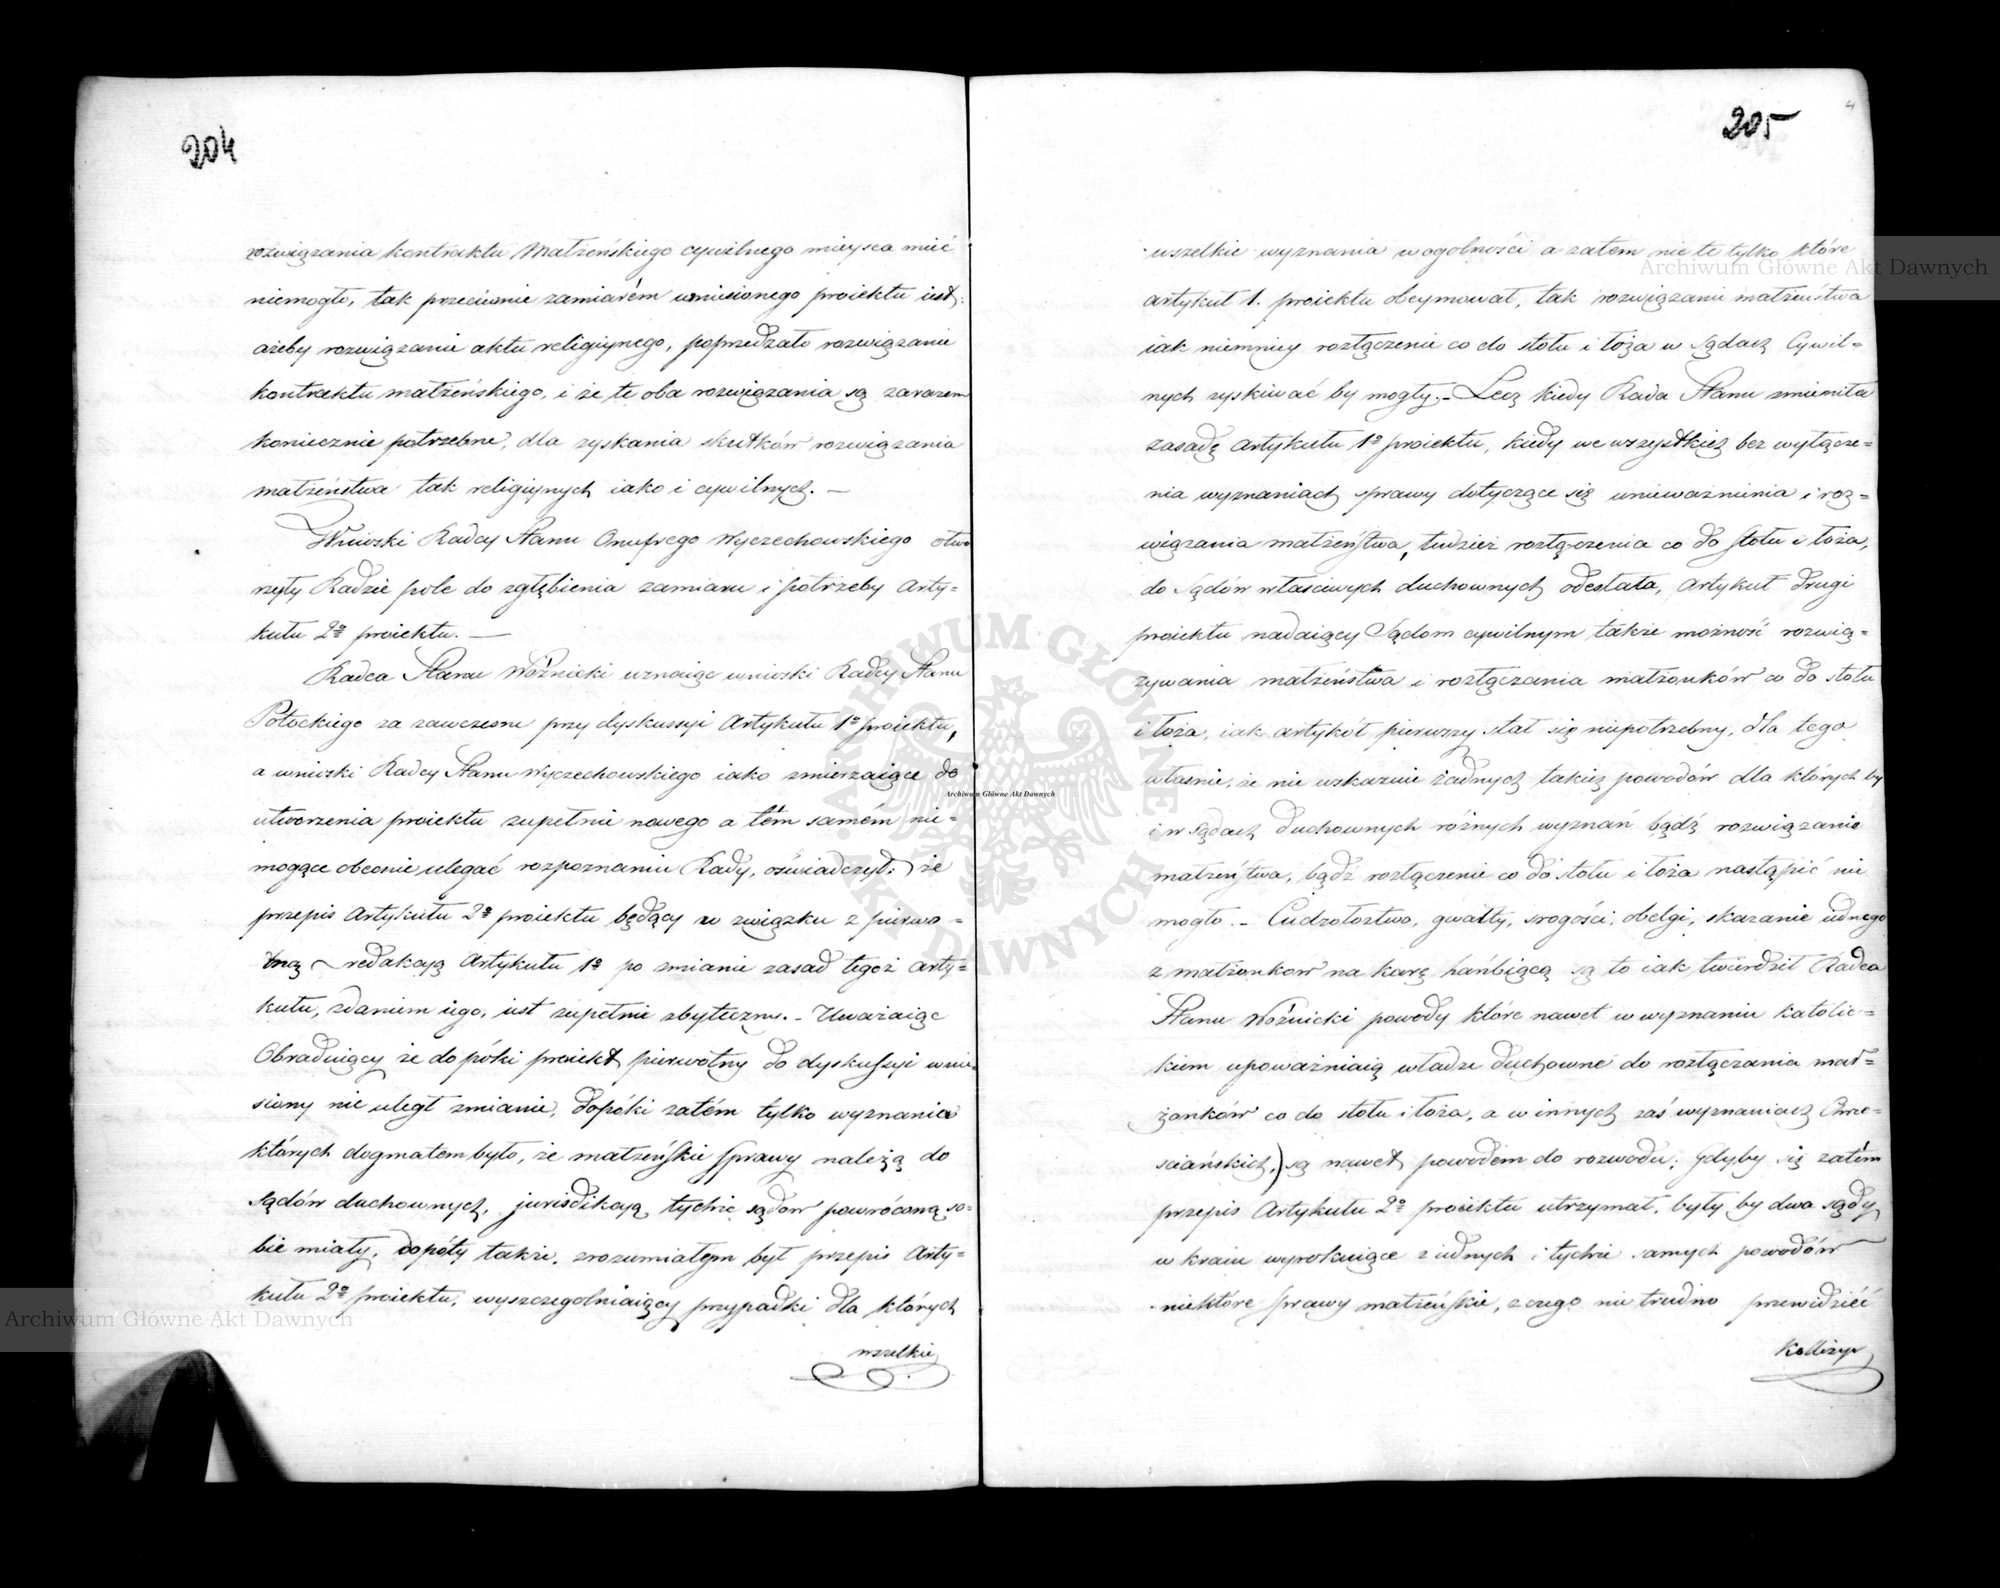 204
rozwiązania kontraktu Małżeńskiego cywilnego mieysca mieć
niemogło, tak przeciwnie zamiarem wniesionego proiektu iest,
ażeby rozwiązanie aktu religiynego, poprzedzało rozwiązanie
kontraktu małżeńskiego, i że te oba rozwiązania są zarazem
koniecznie potrzebne, dla zyskania skutków rozwiązania
małżeństwa tak religiynych iako i cywilnych. —
Wnioski Radcy Stanu Onufrego Wyczechowskiego otwo
rzyły Radzie pole do zgłębienia zamiaru i potrzeby Arty=
kułu 2º proiektu. —
Radca Stanu Woźnicki uznaiąc wnioski Radcy Stanu
Potockiego za zawczesne przy dyskussyi Artykułu 1º proiektu,
a wnioski Radcy Stanu Wyczechowskiego iako zmierzaiące do
utworzenia proiektu zupełnie nowego a tém samém nie=
mogące obecnie ulegać rozpoznaniu Rady, oświadczył: że
przepis Artykułu 2º proiektu będący w związku z pierwo=
tną redakcyą Artykułu 1º po zmianie zasad tegoż Arty=
kułu, zdaniem iego, iest zupełnie zbyteczny. - Uważaiąc
Obraduiący że dopóki proiekt pierwotny do dyskussyi wnie=
siony nie uległ zmianie, dopóki zatém tylko wyznania
których dogmatem było, że małżeńskie sprawy należą do
sądów duchownych, jurisdikcyą tychże sądów powróconą so=
bie miały, dopóty także, zrozumiałym był przepis Arty=
kułu 2º proiektu, wyszczegolniaiący przypadki dla których
wszelkie
205
4
wszelkie wyznania wogolności a zatem nie te tylko które
artykuł 1. proiektu obeymował, tak rozwiązanie małżeństwa
iak niemniey rozłączenie co do stołu i łoża w Sądach Cywil=
nych zyskiwać by mogły. - Lecz kiedy Rada Stanu zmieniła
zasadę Artykułu 1º proiektu, kiedy we wszystkich bez wyłącze=
nia wyznaniach sprawy dotyczące się unieważnienia i roz=
wiązania małżeństwa, tudzież rozłączenia co do stołu i łoża,
do Sądów właściwych duchownych odesłała, Artykuł drugi
proiektu nadaiący Sądom cywilnym także możność rozwią=
zywania małżeństwa i rozłączania małżonków co do stołu
i łoża, iak artykół pierwszy stał się niepotrzebny, dla tego
właśnie, że nie wskazuie żadnych takich powodów dla których by
i w sądach duchownych różnych wyznań bądź rozwiązanie
małżeństwa, bądź rozłączenie co do stołu i łoża nastąpić nie
mogło. - Cudzołoztwo, gwałty, srogości, obelgi, skazanie iednego
z małżonkow na karę hańbiącą są to iak twierdził Radca
Stanu Woźnicki powody które nawet w wyznaniu katolic=
kiem upoważniaią władze duchowne do rozłączania mał=
żonków co do stołu i łoża, a w innych zaś wyznaniach Chrze=
sciańskich, są nawet powodem do rozwodu; gdyby się zatém
przepis Artykułu 2º proiektu utrzymał, byłyby dwa sądy
w kraiu wyrokuiące z iednych i tychże samych powodów
niektóre sprawy małżeńskie, z czego nie trudno przewidzieć
Kollizye
Archiwum Główne Akt Dawnych
Archiwum Główne Akt Dawnych
Archiwum Główne Akt Dawnych
ARCHIWUM GŁÓWNE AKT DAWNYCH